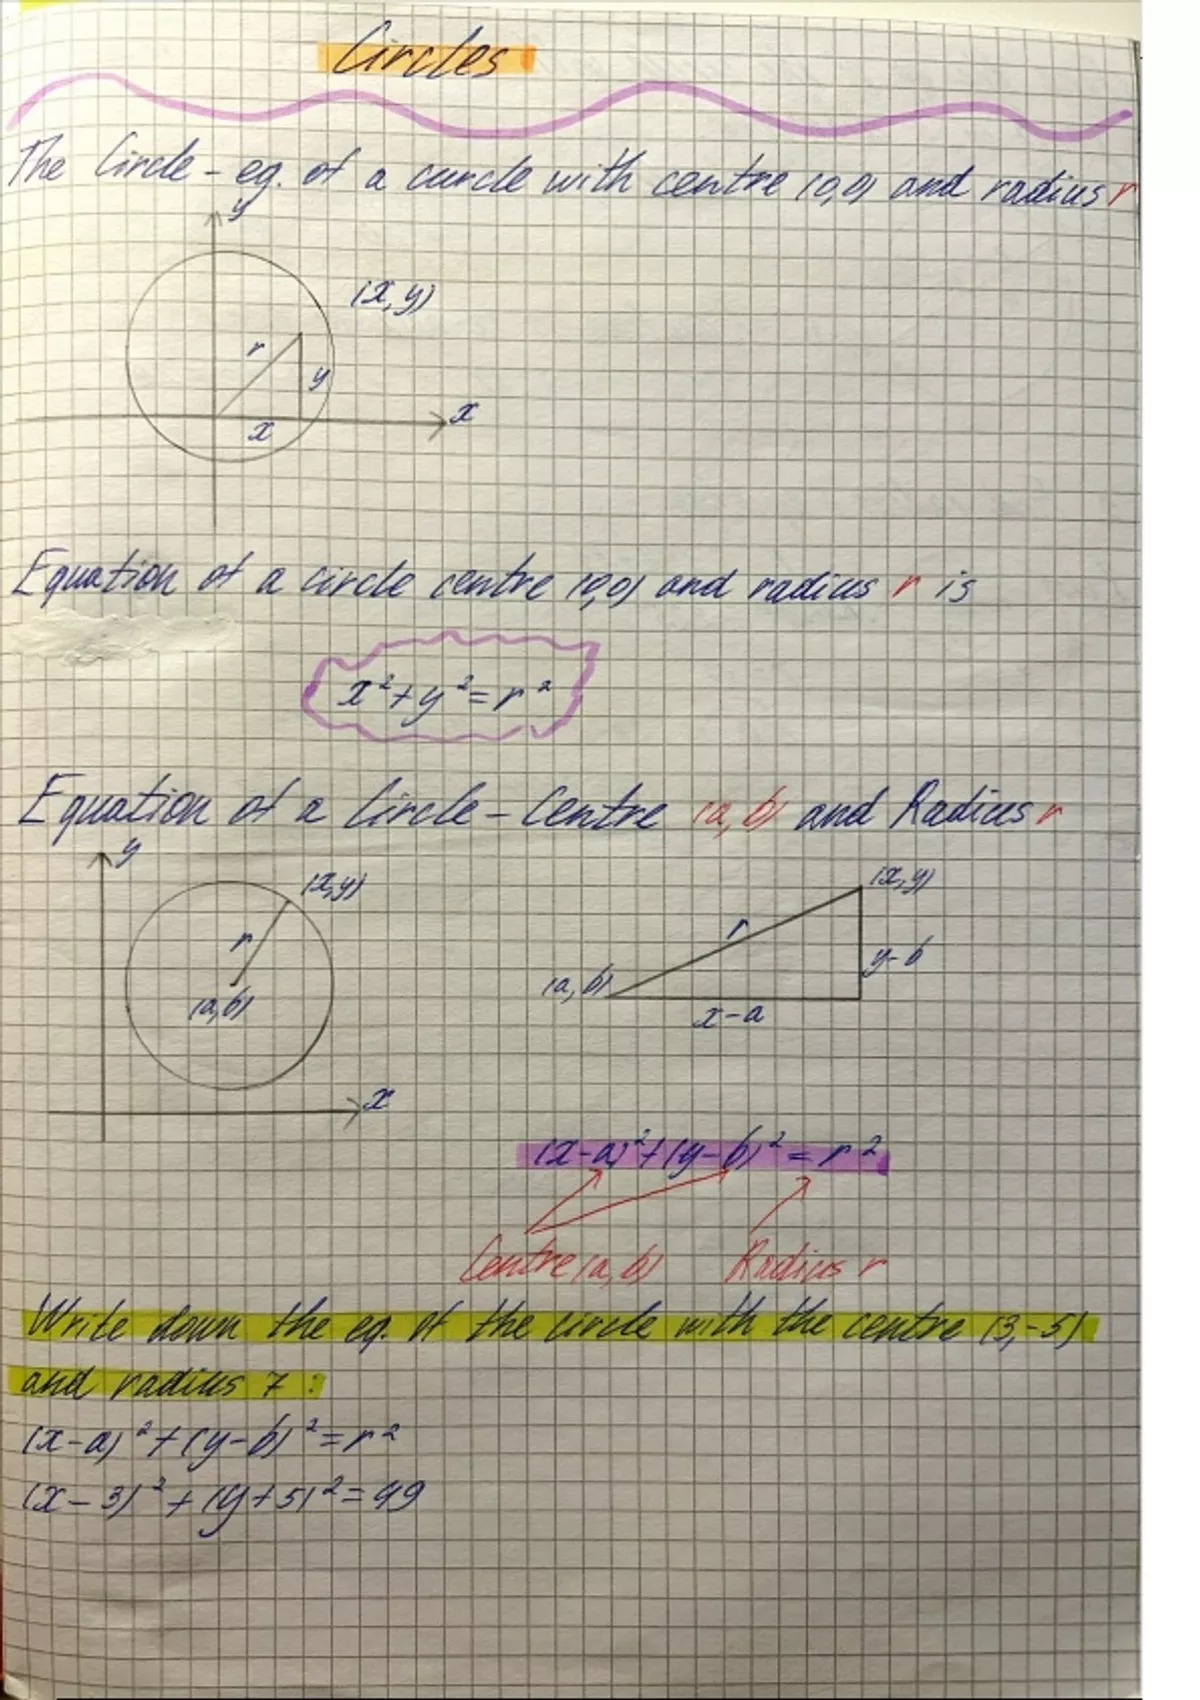 Circles
The Circle - eq. of a curcle with centre (0,0) and radius r
y
(x, y)
r
y
x
x
Equation of a circle centre (0,0) and radius r is
x² + y² = r²
Equation of a Circle - Centre (a, b) and Radius r
y
(x,y)
r
(a,b)
x
(x,y)
r
y-b
(a, b)
x-a
(x-a)² + (y-b)² = r²
Centre (a, b) Radius r
Write down the eq. of the circle with the centre (3,-5)
and radius 7 :
(x-a)² + (y-b)² = r²
(x-3)² + (y+5)² = 49